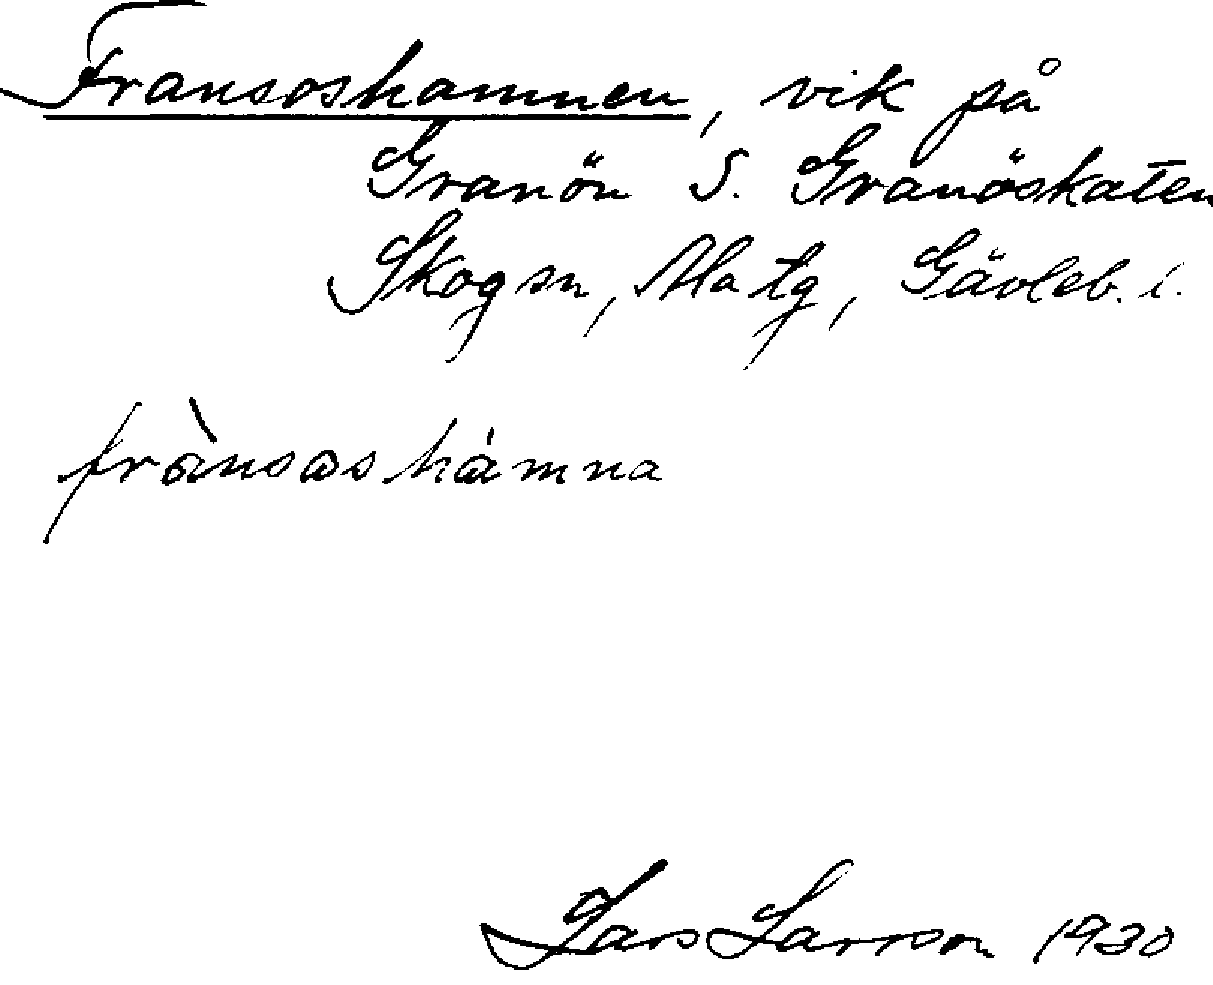 Fransoshamnen, vik på
Granön S. Granöskaten
Skogsn, Ala tg, Gävleb. l.
frànsɷshámna
Lars Larsson 1930